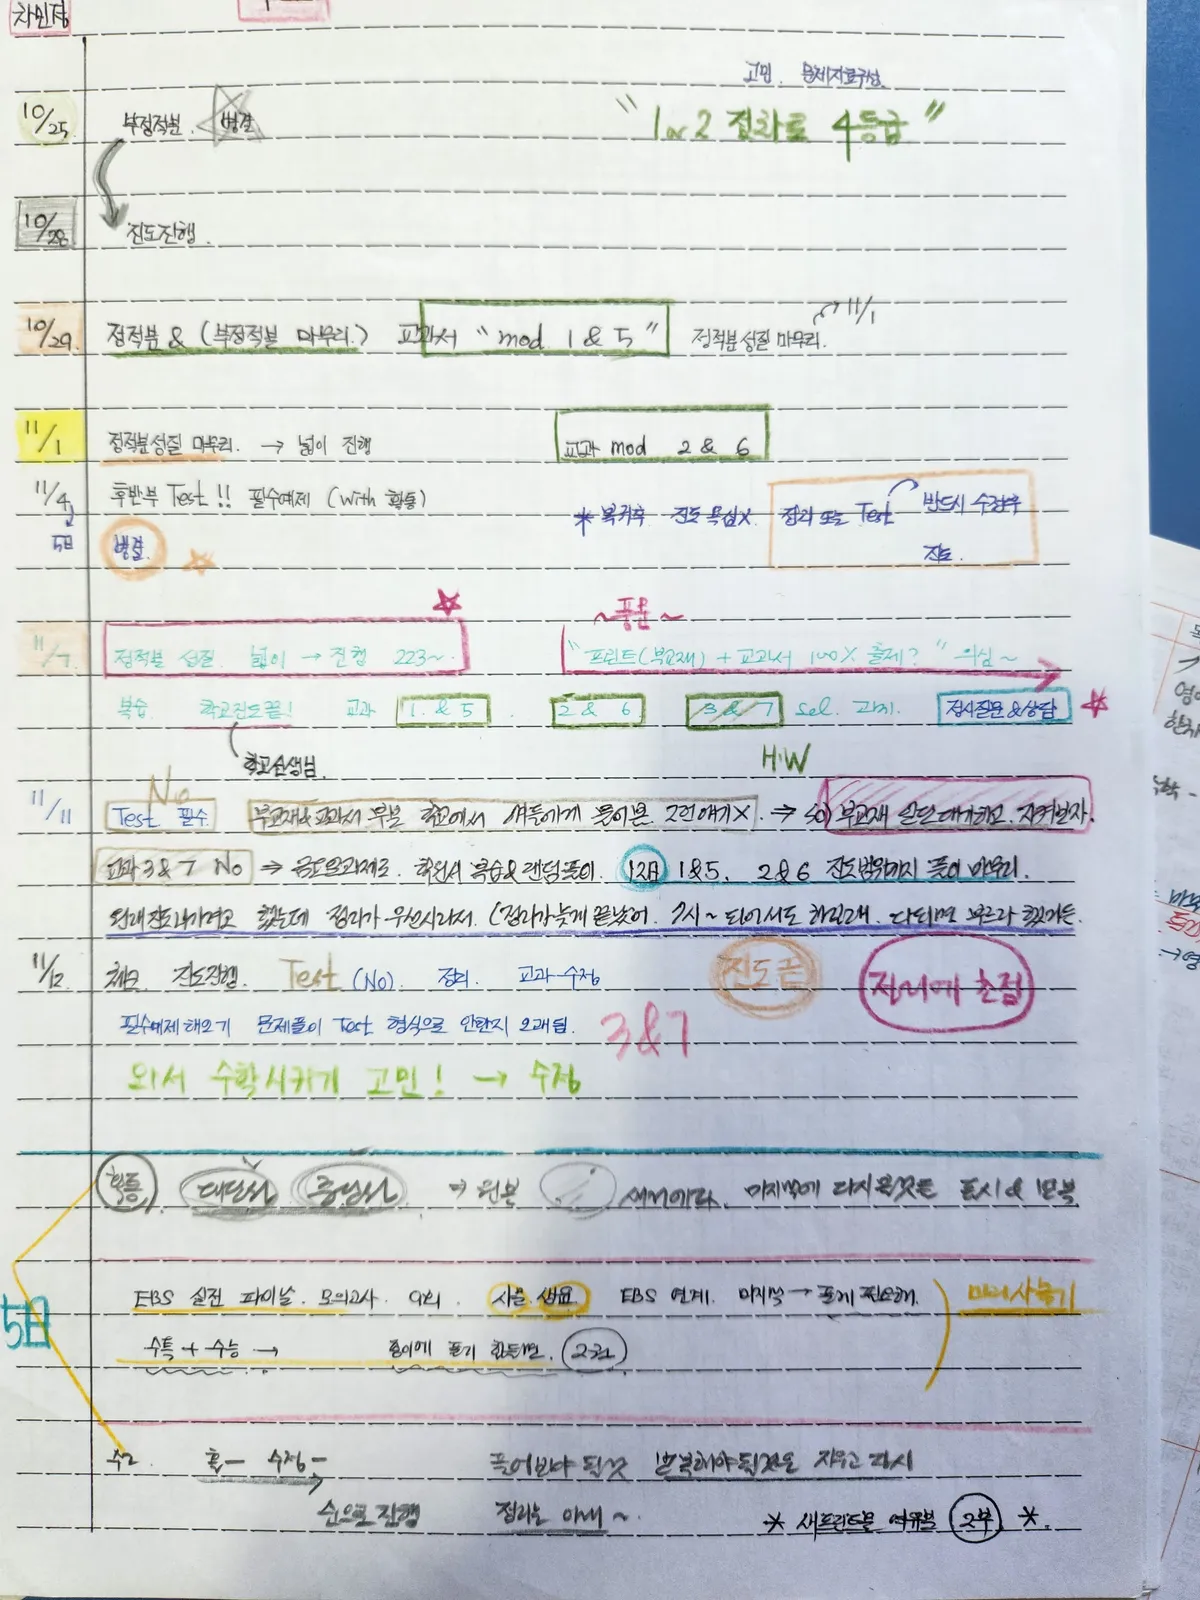 차민정
고민. 문제자료구성
10/25 부정적분. 병결 "1 or 2 점차로 4등급"
10/28 진도진행.
10/29 정적분 & (부정적분 마무리.) 교과서 "mod 1 & 5" 정적분성질 마무리. → 11/1
11/1 정적분성질 마무리. → 넓이 진행 교과 mod 2 & 6
11/4 후반부 Test !! 필수예제 (with 활동)
* 복귀후 진도 욕심X. 정리 또는 Test 반드시 수정후
5日 병결. 진도.
~풍문~
11/7 정적분 성질. 넓이 → 진행 223~. "프린트(부교재) + 교과서 100% 출제?" 의심~
복습. 학교진도끝! 교과 1 & 5. 2 & 6 3 & 7 sel. 과제. 접시질문&상담
학교선생님.
H.W
No
11/11 Test 필수. 부교재&교과서 부분 학교에서 애들에게 물어본 2번얘기X. → so) 부교재 일단대기하고 지켜보자.
교과 3 & 7 No → 금요일과제로. 학원서 복습&랜덤풀이. 12日 1&5. 2&6 진도범위까지 풀이 마무리.
원래진도나가려고 했는데 정리가 우선시라서. (정리가늦게 끝났어. 7시~
11/12. 체크. 진도진행. Test (No). 정리. 교과 수정 진도 끝 정리에 초점
필수예제해오기 문제풀이 Test 형식으로 안한지 오래됨. 3&7
와서 수학시키기 고민! → 수정
확통 대단원 중단원 → 원본 마지막에 다시 볼것들 표시 &
EBS 실전 파이널. 모의고사. 9회. 사용 EBS 연계. 마지막 → 풀게 미리사놓기
5日 수특 + 수능 → 풀기 힘들면. 2권
수2. 홀— 수정— 풀어봐야 될것 반복해야될것은 지우고 다시
순으로 진행 정리는 아래~ * 새프린트물 여유분 2부 *.